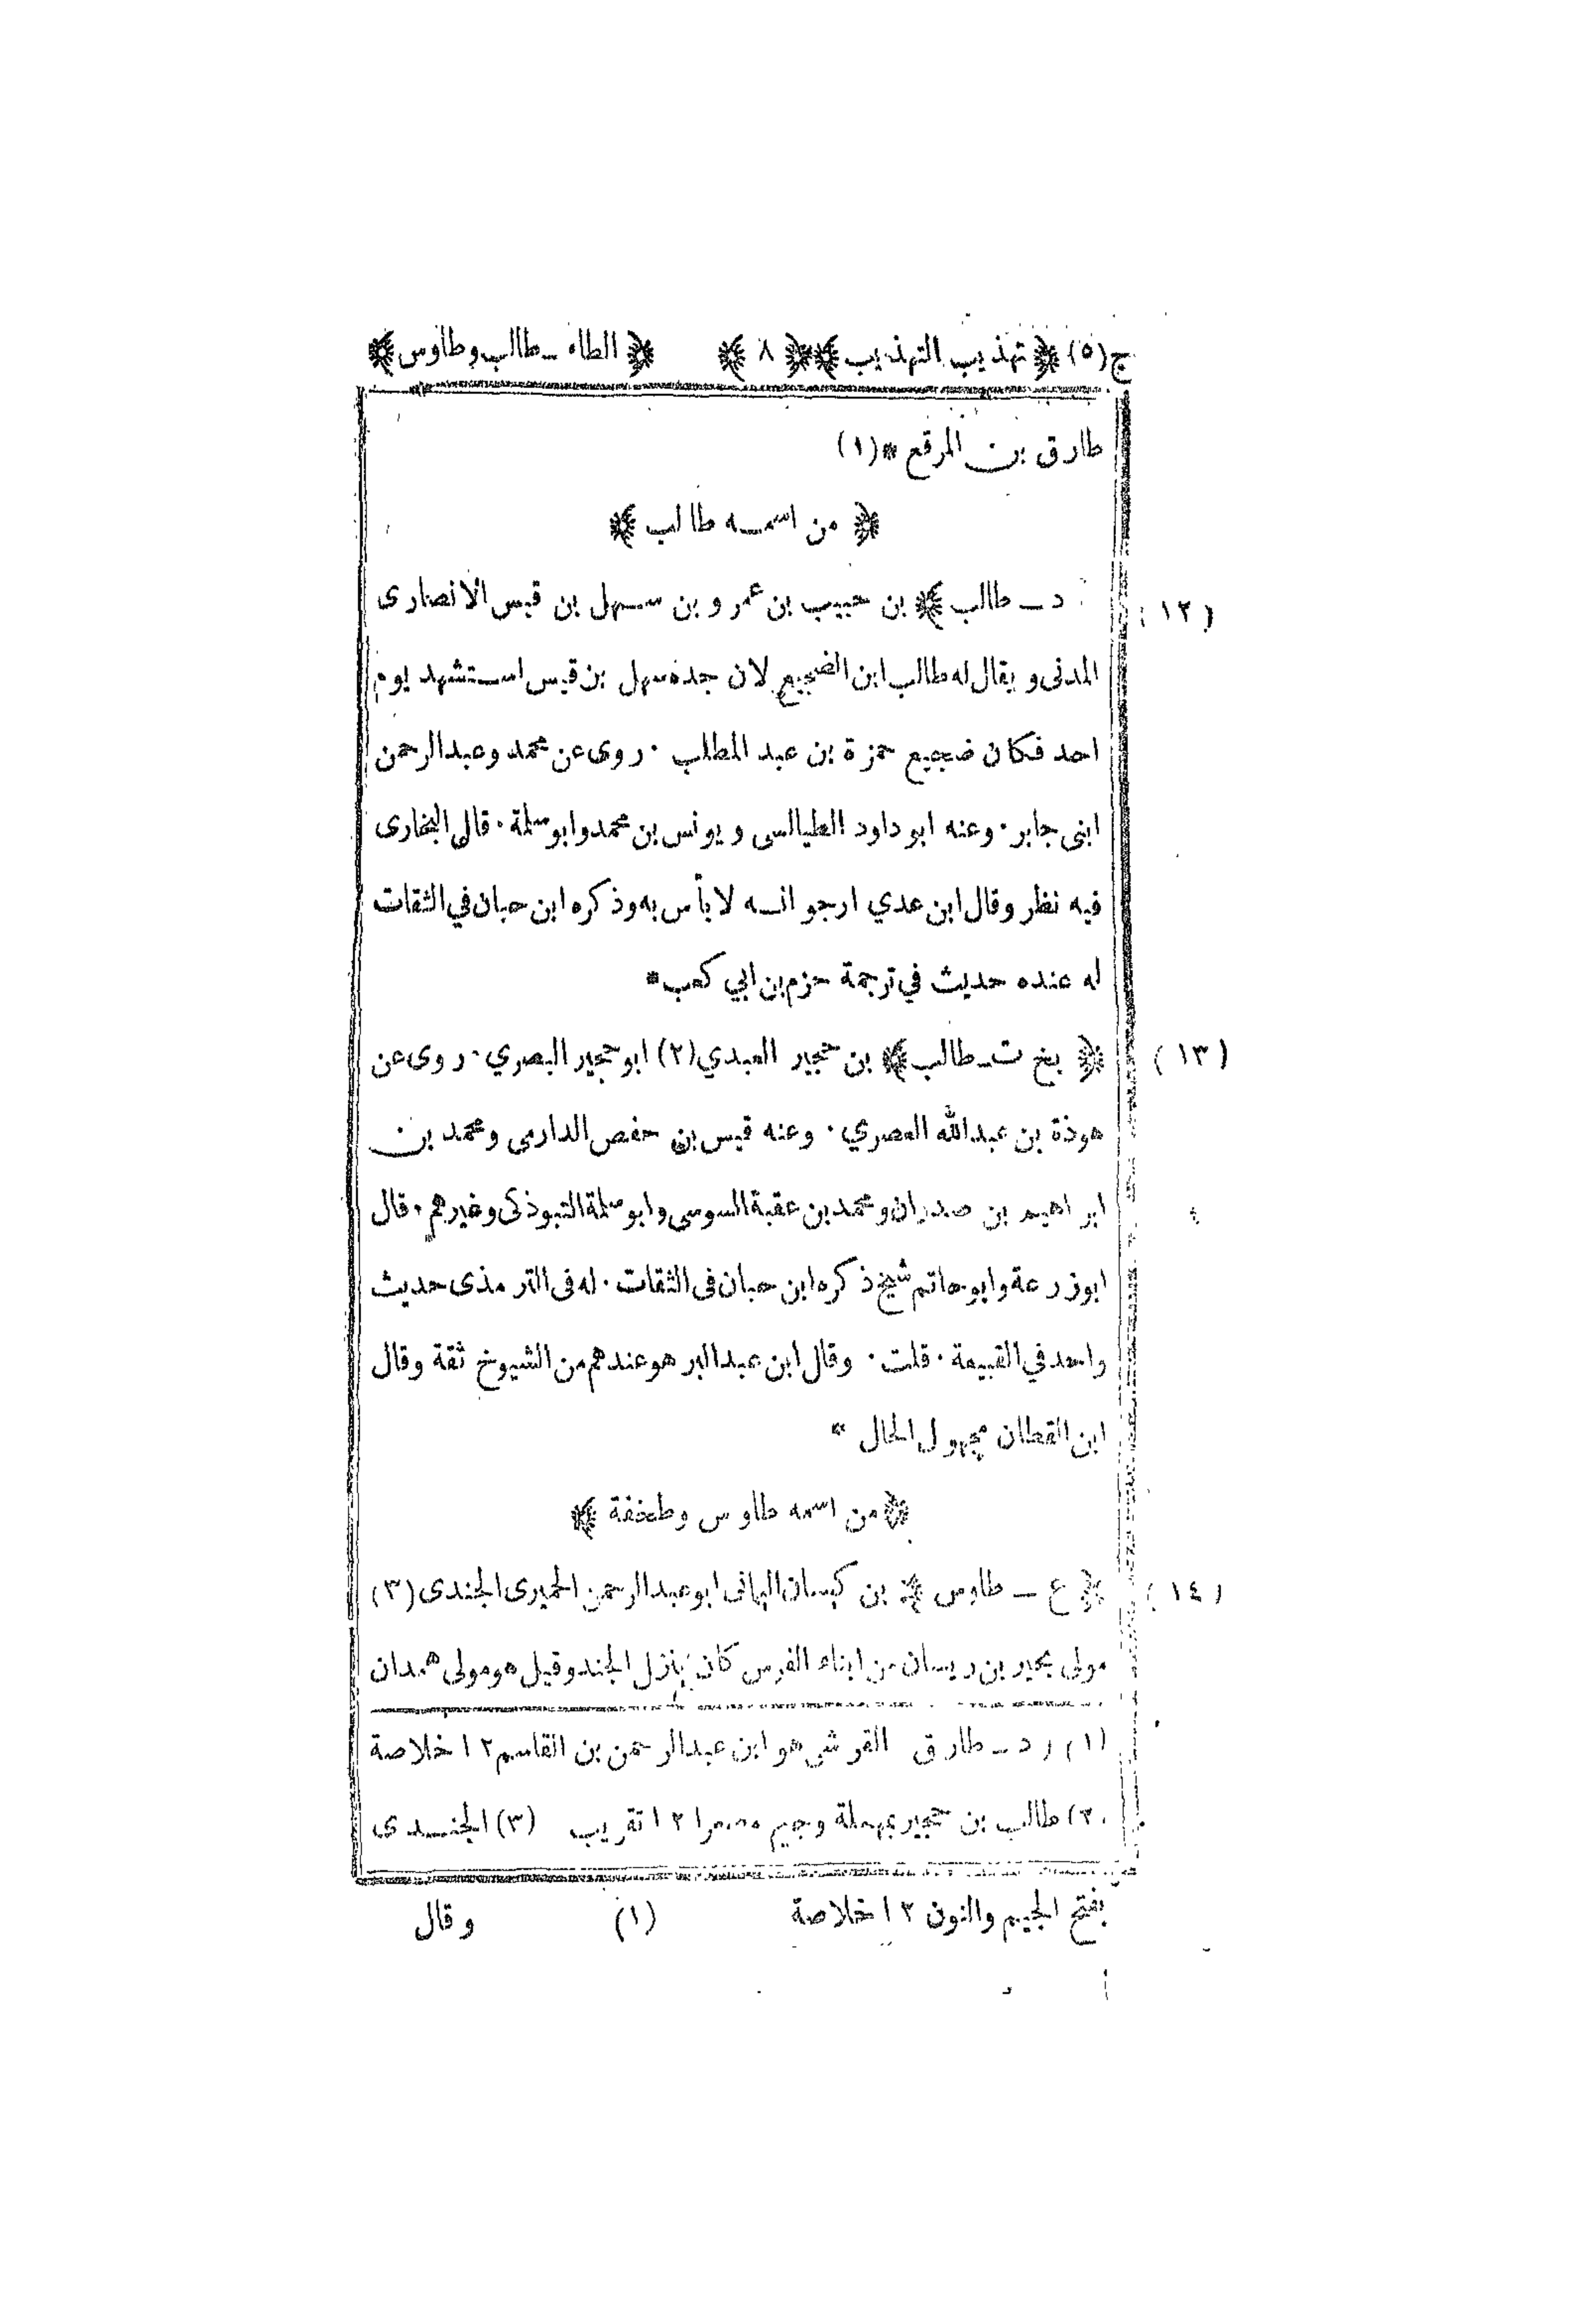 ج(٥) ﴿ تهذيب التهذيب ﴾ ﴿ ٨ ﴾ ﴿ الطاء ـ طالب وطاوس ﴾
طارق بن المرقع *(١)
﴿ من اسمه طالب ﴾
(١٢) د ـ طالب ﴾ بن حبيب بن عمرو بن سهل بن قيس الانصارى
المدنى ويقال له طالب ابن الضجيع لان جده سهل بن قيس استشهد يوم
احد فكان ضجيع حمزة بن عبد المطلب ٠ روى عن محمد وعبدالرحمن
ابنى جابر ٠ وعنه ابو داود الطيالسى ويونس بن محمد وابو سلمة ٠ قال البخارى
فيه نظر وقال ابن عدي ارجو انه لا بأس به وذكره ابن حبان في الثقات
له عنده حديث في ترجمة حزم بن ابي كعب *
(١٣) ﴿ بخ ت ـ طالب ﴾ بن حجير العبدي (٢) ابو حجير البصري ٠ روى عن
هوذة بن عبدالله العصري ٠ وعنه قيس بن حفص الدارمى ومحمد بن
ابراهيم بن صدران ومحمد بن عقبة السوسى وابو سلمة التبوذكى وغيرهم ٠ قال
ابو زرعة وابو حاتم شيخ ذكره ابن حبان فى الثقات ٠ له فى الترمذى حديث
واحد في القبيعة ٠ قلت ٠ وقال ابن عبدالبر هو عندهم من الشيوخ ثقة وقال
ابن القطان مجهول الحال *
﴿ من اسمه طاوس وطخفة ﴾
(١٤) ﴿ ع ـ طاوس ﴾ بن كيسان اليمانى ابو عبدالرحمن الحميرى الجندى (٣)
مولى بحير بن ريسان من ابناء الفرس كان ينزل الجند وقيل هو مولى همدان
(١) د ـ طارق القرشى هو ابن عبدالرحمن بن القاسم ١٢ خلاصة
(٢) طالب بن حجير بمهملة وجيم مصغرا ١٢ تقريب (٣) الجندى
بفتح الجيم والنون ١٢ خلاصة (١) وقال